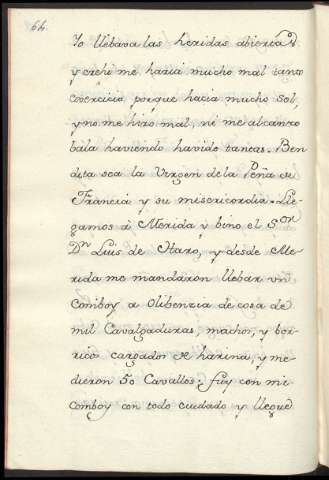 64.
Yo llebava las heridas abiertas
y crehi me haria mucho mal tanto
exercicio porque hacia mucho sol,
y no me hizo mal, ni me alcanzo
bala haviendo havido tantas. Ben
dita sea la Virgen de la Peña de
Francia y su misericordia. Lle
gamos á Merida y bino el Sor
Dn Luis de Haro, y desde Me
rida me mandaron llebar vn
Comboy a Olibenzia de cosa de
mil Cavalgaduras, machos, y bor
ricos cargados de harina, y me
dieron 50 Cavallos: fuy con mi
comboy con todo cuidado y llegué